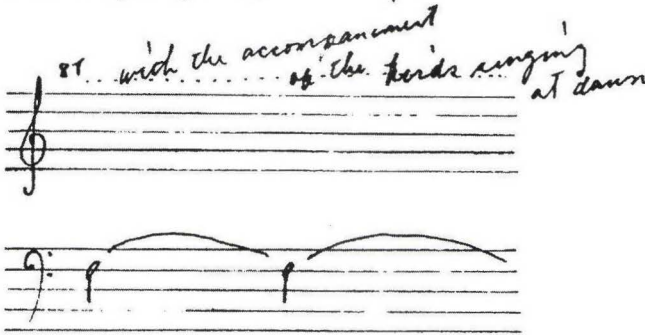 with the accompaniment
of the birds singing
at dawn